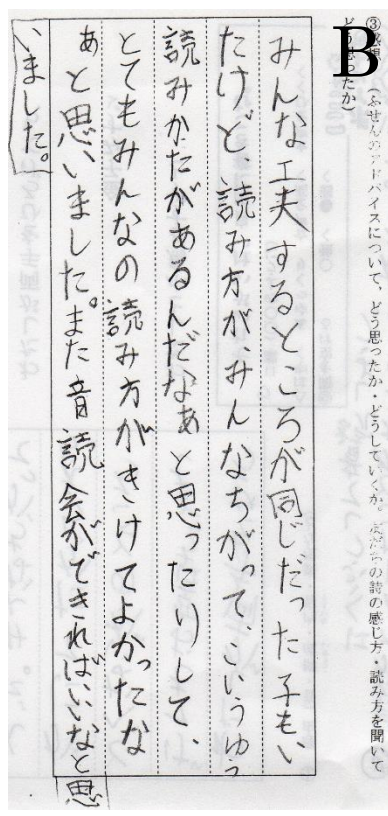 B
(ふせんのアドバイスについて、どう思ったか・どうしていくか。友だちの詩の感じ方・読み方を聞いて
ど思ったか)
みんな工夫するところが同じだった子もい
たけど、読み方が、みんなちがって、こいうゆう
読みかたがあるんだなぁと思ったりして、
とてもみんなの読み方がきけてよかったな
ぁと思いました。また音読会ができればいいなと思
いました。